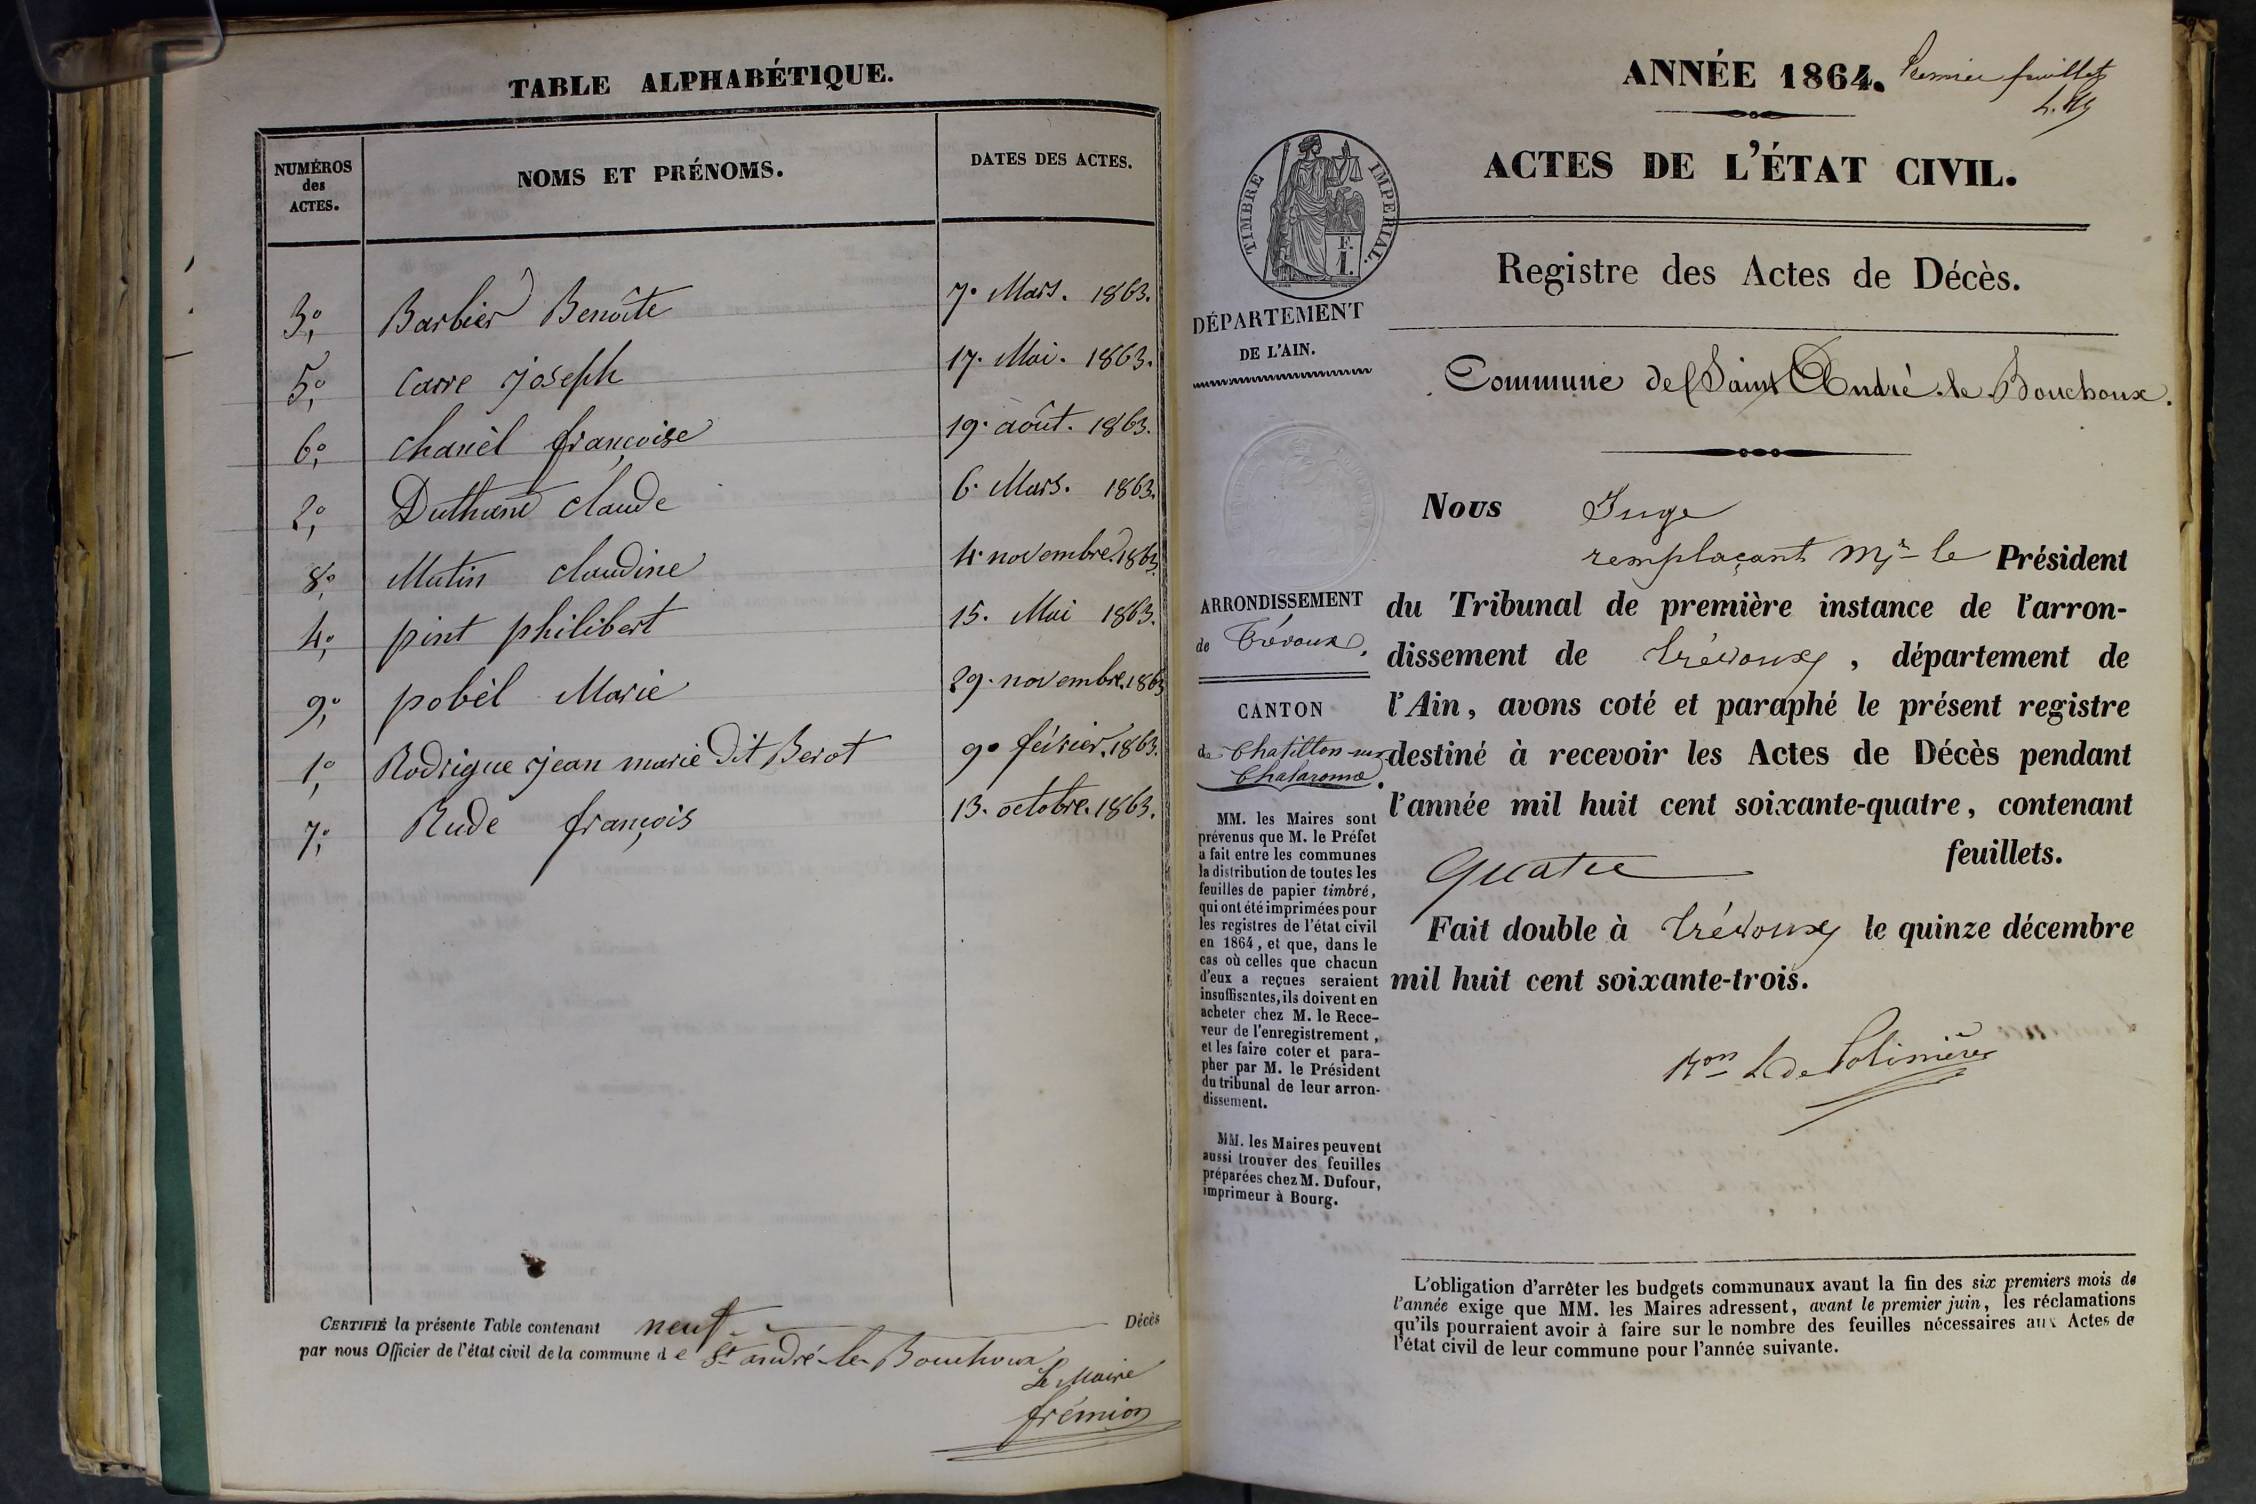 TABLE ALPHABÉTIQUE.
NUMÉROS
des
ACTES.
NOMS ET PRÉNOMS.
DATES DES ACTES.
3,° Barbier Benoîte 7. Mars. 1863.
5,° Carre joseph 17. Mai. 1863.
6,° chanèl françoise 19. août. 1863.
2,° claude 6. Mars. 1863.
8,° Mutin claudine 4. novembre. 1863.
4,° pint philibert 15. Mai 1863.
9,° pobèl Marie 29. novembre. 1863
1,° Rodrigue jean marie Dit Berot 9. février. 1863.
7,° Rude françois 13. octobre. 1863.
CERTIFIÉ la présente Table contenant neuf Décès
par nous Officier de l'état civil de la commune de St andré-le-Bouchoux
Le Maire
frémion
ANNÉE 1864. Premier feuillet
ACTES DE L'ÉTAT CIVIL.
TIMBRE IMPERIAL.
F.
1.
Registre des Actes de Décès.
DÉPARTEMENT
DE L'AIN.
Commune de Saint André-le-Bouchoux.
Nous Juge
remplaçant Mr le Président
du Tribunal de première instance de l'arron-
dissement de Trévoux, département de
l'Ain, avons coté et paraphé le présent registre
destiné à recevoir les Actes de Décès pendant
l'année mil huit cent soixante-quatre, contenant
quatre feuillets.
Fait double à Trévoux le quinze décembre
mil huit cent soixante-trois.
Bon L de Polinière
ARRONDISSEMENT
de Trévoux.
CANTON
de Chatillon-sur
Chalaronne.
MM. les Maires sont
prévenus que M. le Préfet
a fait entre les communes
la distribution de toutes les
feuilles de papier timbré,
qui ont été imprimées pour
les registres de l'état civil
en 1864, et que, dans le
cas où celles que chacun
d'eux a reçues seraient
insuffisantes, ils doivent en
acheter chez M. le Rece-
veur de l'enregistrement,
et les faire coter et para-
pher par M. le Président
du tribunal de leur arron-
dissement.
MM. les Maires peuvent
aussi trouver des feuilles
préparées chez M. Dufour,
imprimeur à Bourg.
L'obligation d'arrêter les budgets communaux avant la fin des six premiers mois de
l'année exige que MM. les Maires adressent, avant le premier juin, les réclamations
qu'ils pourraient avoir à faire sur le nombre des feuilles nécessaires aux Actes de
l'état civil de leur commune pour l'année suivante.